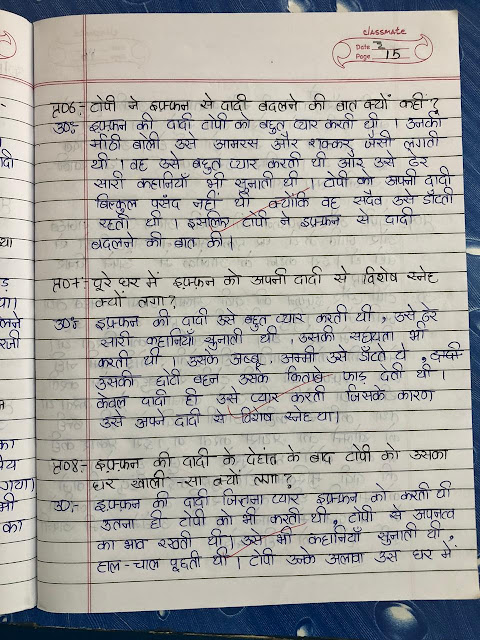 classmate
Date 2
Page 15
प्र०6:- टोपी ने इफ़्फ़न से दादी बदलने की बात क्यों कहीं?
उ०:- इफ़्फ़न की दादी टोपी को बहुत प्यार करती थी। उनकी
मीठी बोली उसे आमरस और शक्कर जैसी लगती
थी। वह उसे बहुत प्यार करती थी और उसे ढेर
सारी कहानियाँ भी सुनाती थी। टोपी को अपनी दादी
बिल्कुल पसंद नहीं थी क्योंकि वह सदैव उसे डाँटती
रहती थी। इसलिए टोपी ने इफ़्फ़न से दादी
बदलने की बात की।
प्र०7:- पूरे घर में इफ़्फ़न को अपनी दादी से विशेष स्नेह
क्यों लगा?
उ०:- इफ़्फ़न की दादी उसे बहुत प्यार करती थी, उसे ढेर
सारी कहानियाँ सुनाती थी, उसकी सहायता भी
करती थी। उसके अब्बू, अम्मी उसे डाँटते थे,
उसकी छोटी बहन उसके किताबे फाड़ देती थी।
केवल दादी ही उसे प्यार करती जिसके कारण
उसे अपने दादी से विशेष स्नेह था।
प्र०8:- इफ़्फ़न की दादी के देहांत के बाद टोपी को उसका
घर खाली-सा क्यों लगा?
उ०:- इफ़्फ़न की दादी जितना प्यार इफ़्फ़न को करती थी
उतना ही टोपी को भी करती थी, टोपी से अपनत्व
का भाव रखती थी। उसे भी कहानियाँ सुनाती थी,
हाल-चाल पूछती थी। टोपी उनके अलावा उस घर में